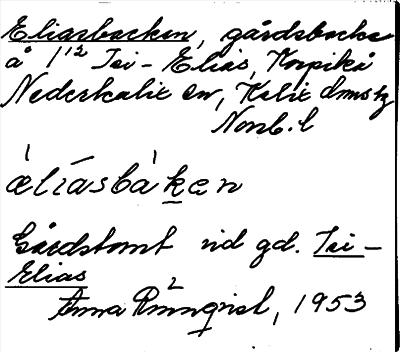 Eliasbacken, gårdsbacke
å 1¹² Isi-Elias, Korpikå
Nederkalix sn, Kalix dmstg
Norrb. l
æ̍līasbà ken
Gårdstomt vid gd. Isi-
Elias
Anna Rönnqvist, 1953